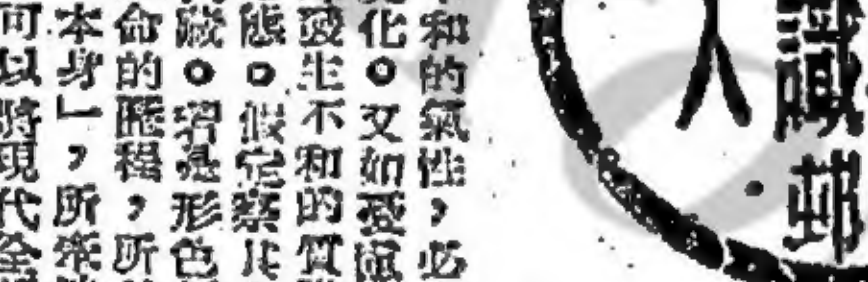 識
和的氣性，必
化。又如憂慮
發生不和的質
態。假定察其
藏。若是形色
命的歷程，所
本身」，所
可以將現代全